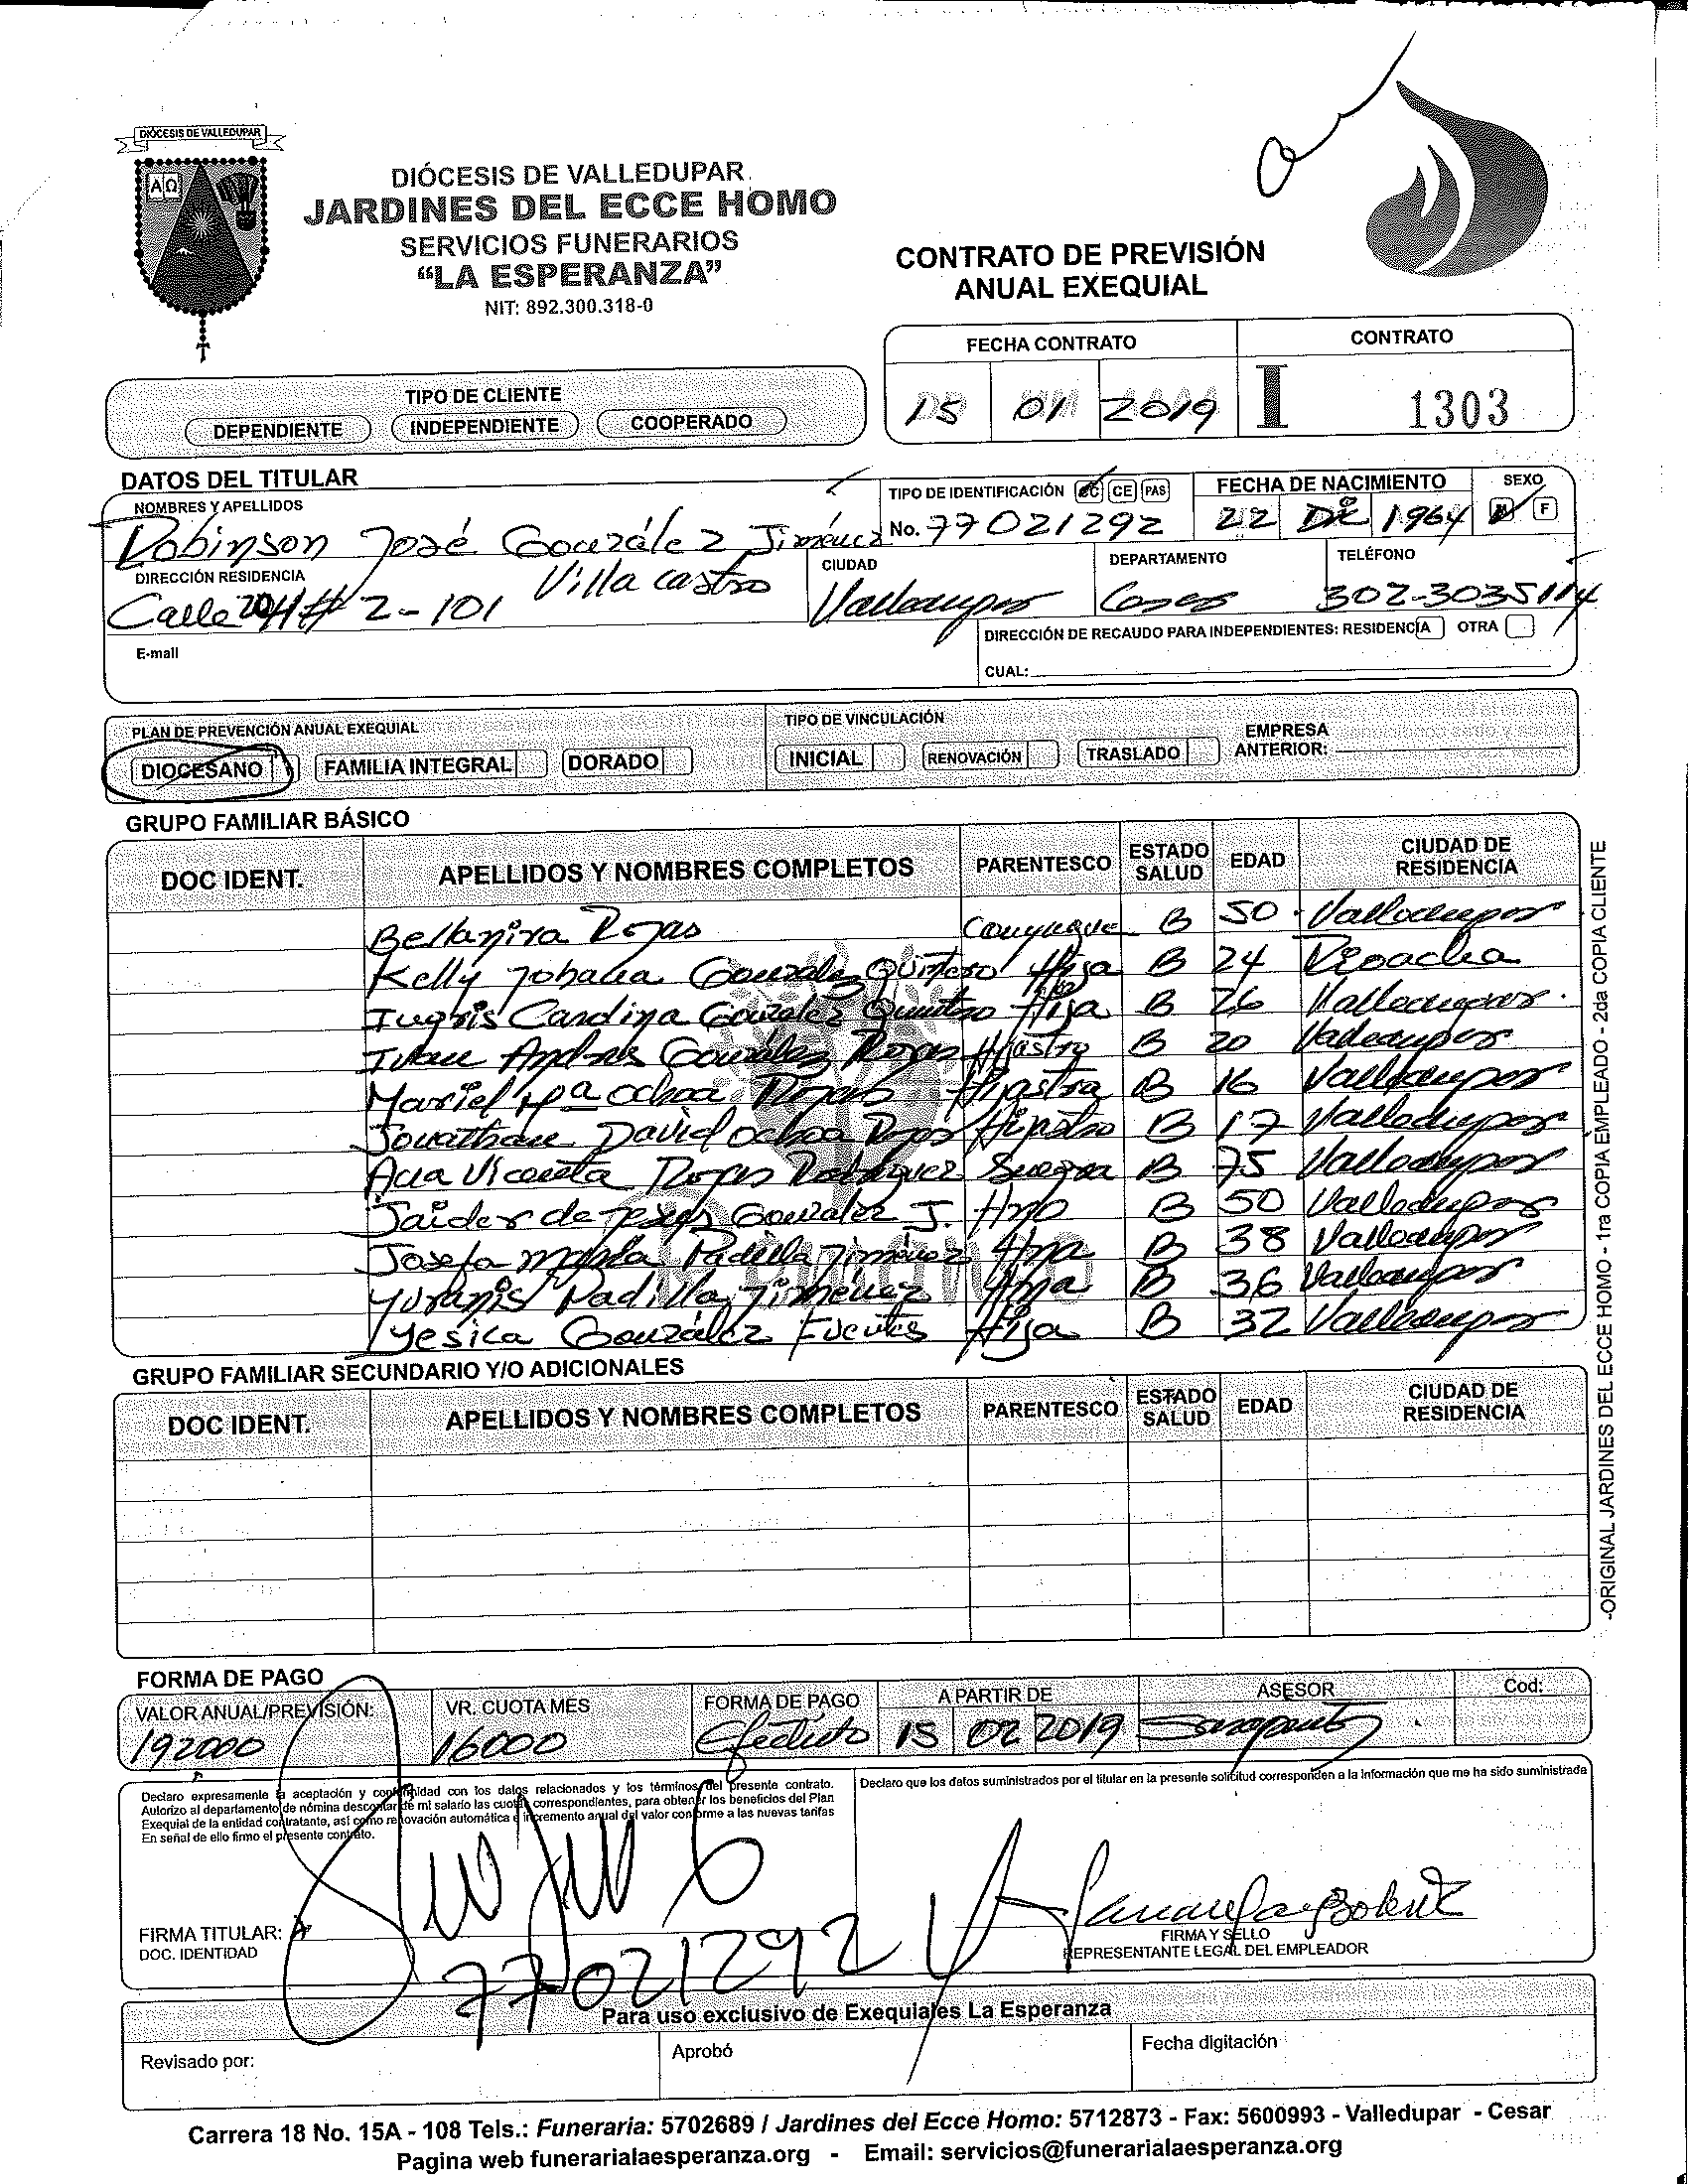 DIÓCESIS DE VALLEDUPAR
AΩ
DIÓCESIS DE VALLEDUPAR
JARDINES DEL ECCE HOMO
SERVICIOS FUNERARIOS
“LA ESPERANZA”
NIT: 892.300.318-0
CONTRATO DE PREVISIÓN
ANUAL EXEQUIAL
FECHA CONTRATO CONTRATO
15 01 2019 I 1303
TIPO DE CLIENTE
DEPENDIENTE INDEPENDIENTE COOPERADO
DATOS DEL TITULAR
NOMBRES Y APELLIDOS TIPO DE IDENTIFICACIÓN CC CE PAS FECHA DE NACIMIENTO SEXO
Robinson José González Jiménez No. 77021292 22 Dic 1964 M F
DIRECCIÓN RESIDENCIA CIUDAD DEPARTAMENTO TELÉFONO
Calle 20H # 2-101 Villa Castro Valledupar Cesar 302-3035114
E-mail DIRECCIÓN DE RECAUDO PARA INDEPENDIENTES: RESIDENCIA OTRA
CUAL:
PLAN DE PREVENCIÓN ANUAL EXEQUIAL TIPO DE VINCULACIÓN EMPRESA
DIOCESANO FAMILIA INTEGRAL DORADO INICIAL RENOVACIÓN TRASLADO ANTERIOR:
GRUPO FAMILIAR BÁSICO
DOC IDENT. APELLIDOS Y NOMBRES COMPLETOS PARENTESCO ESTADO SALUD EDAD CIUDAD DE RESIDENCIA
Bellanira Rojas Conyugue B 50 Valledupar
Kelly Johana Gonzalez Quintero Hija B 24 Rioacha
Carolina González Quintero Hija B 26 Valledupar
Ivan Andres González Rojas Hijastro B 20 Valledupar
Mariel Mª Ochoa Rojas Hijastra B 16 Valledupar
Jonathan David Ochoa Rojas Hijastro B 17 Valledupar
Ana Vicenta Rojas Rodriguez Suegra B 75 Valledupar
Jaider de Jesus Gonzalez J. Hno B 50 Valledupar
Josefa María Padilla Jiménez Hna B 38 Valledupar
Yuranis Padilla Jiménez Hna B 36 Valledupar
Yesica González Fuentes Hija B 32 Valledupar
GRUPO FAMILIAR SECUNDARIO Y/O ADICIONALES
DOC IDENT. APELLIDOS Y NOMBRES COMPLETOS PARENTESCO ESTADO SALUD EDAD CIUDAD DE RESIDENCIA
-ORIGINAL JARDINES DEL ECCE HOMO - 1ra COPIA EMPLEADO - 2da COPIA CLIENTE
FORMA DE PAGO
VALOR ANUAL/PREVISIÓN: VR. CUOTA MES FORMA DE PAGO A PARTIR DE ASESOR Cod:
192000 16000 Efectivo 15 02 2019
Declaro expresamente la aceptación y conformidad con los datos relacionados y los términos del presente contrato.
Autorizo al departamento de nómina descontar de mi salario las cuotas correspondientes, para obtener los beneficios del Plan
Exequial de la entidad contratante, así como renovación automática e incremento anual del valor conforme a las nuevas tarifas
En señal de ello firmo el presente contrato.
Declaro que los datos suministrados por el titular en la presente solicitud corresponden a la información que me ha sido suministrada
FIRMA TITULAR:
DOC. IDENTIDAD
77021292
FIRMA Y SELLO
REPRESENTANTE LEGAL DEL EMPLEADOR
Para uso exclusivo de Exequiales La Esperanza
Revisado por: Aprobó Fecha digitación
Carrera 18 No. 15A - 108 Tels.: Funeraria: 5702689 / Jardines del Ecce Homo: 5712873 - Fax: 5600993 - Valledupar - Cesar
Pagina web funerarialaesperanza.org - Email: servicios@funerarialaesperanza.org